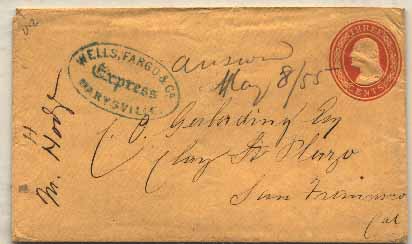 WELLS, FARGO & Co
Express
MARYSVILLE.
THREE
CENTS
answered
May 8/55
H
M. Hodge
C. O. Gerberding Esq
Clay St Plaza
San Francisco
Cal